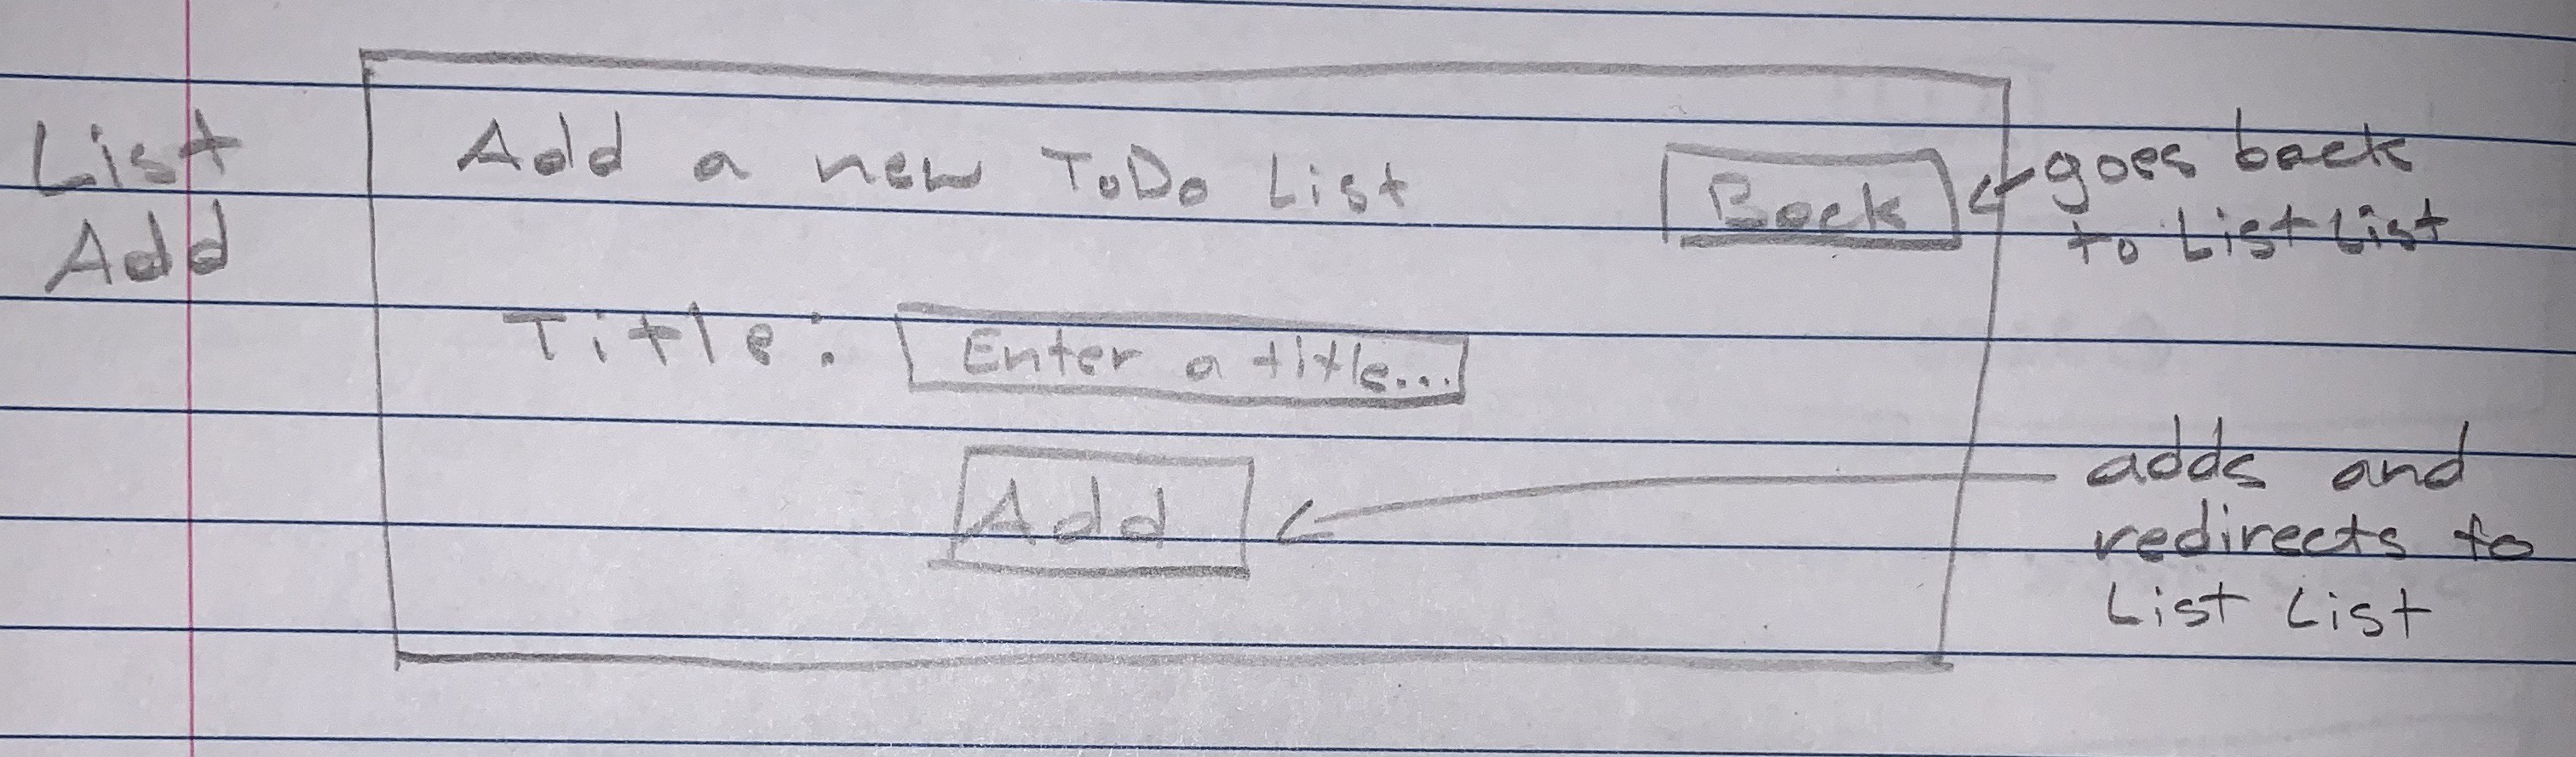 List
Add
Add a new ToDo List
Back
goes back
to List List
Title:
Enter a title...
Add
adds and
redirects to
List List